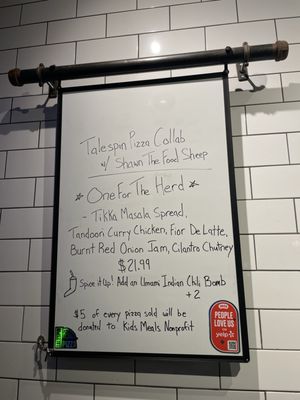 Talespin Pizza Collab
w/ Shawn The Food Sheep
One For The Herd
- Tikka Masala Spread,
Tandoori Curry Chicken, Fior De Latte,
Burnt Red Onion Jam, Cilantro Chutney
$21.99
Spice it Up! Add an Umami Indian Chili Bomb
+2
$5 of every pizza sold will be
donated to Kids Meals Nonprofit
PEOPLE
LOVE US
yelp